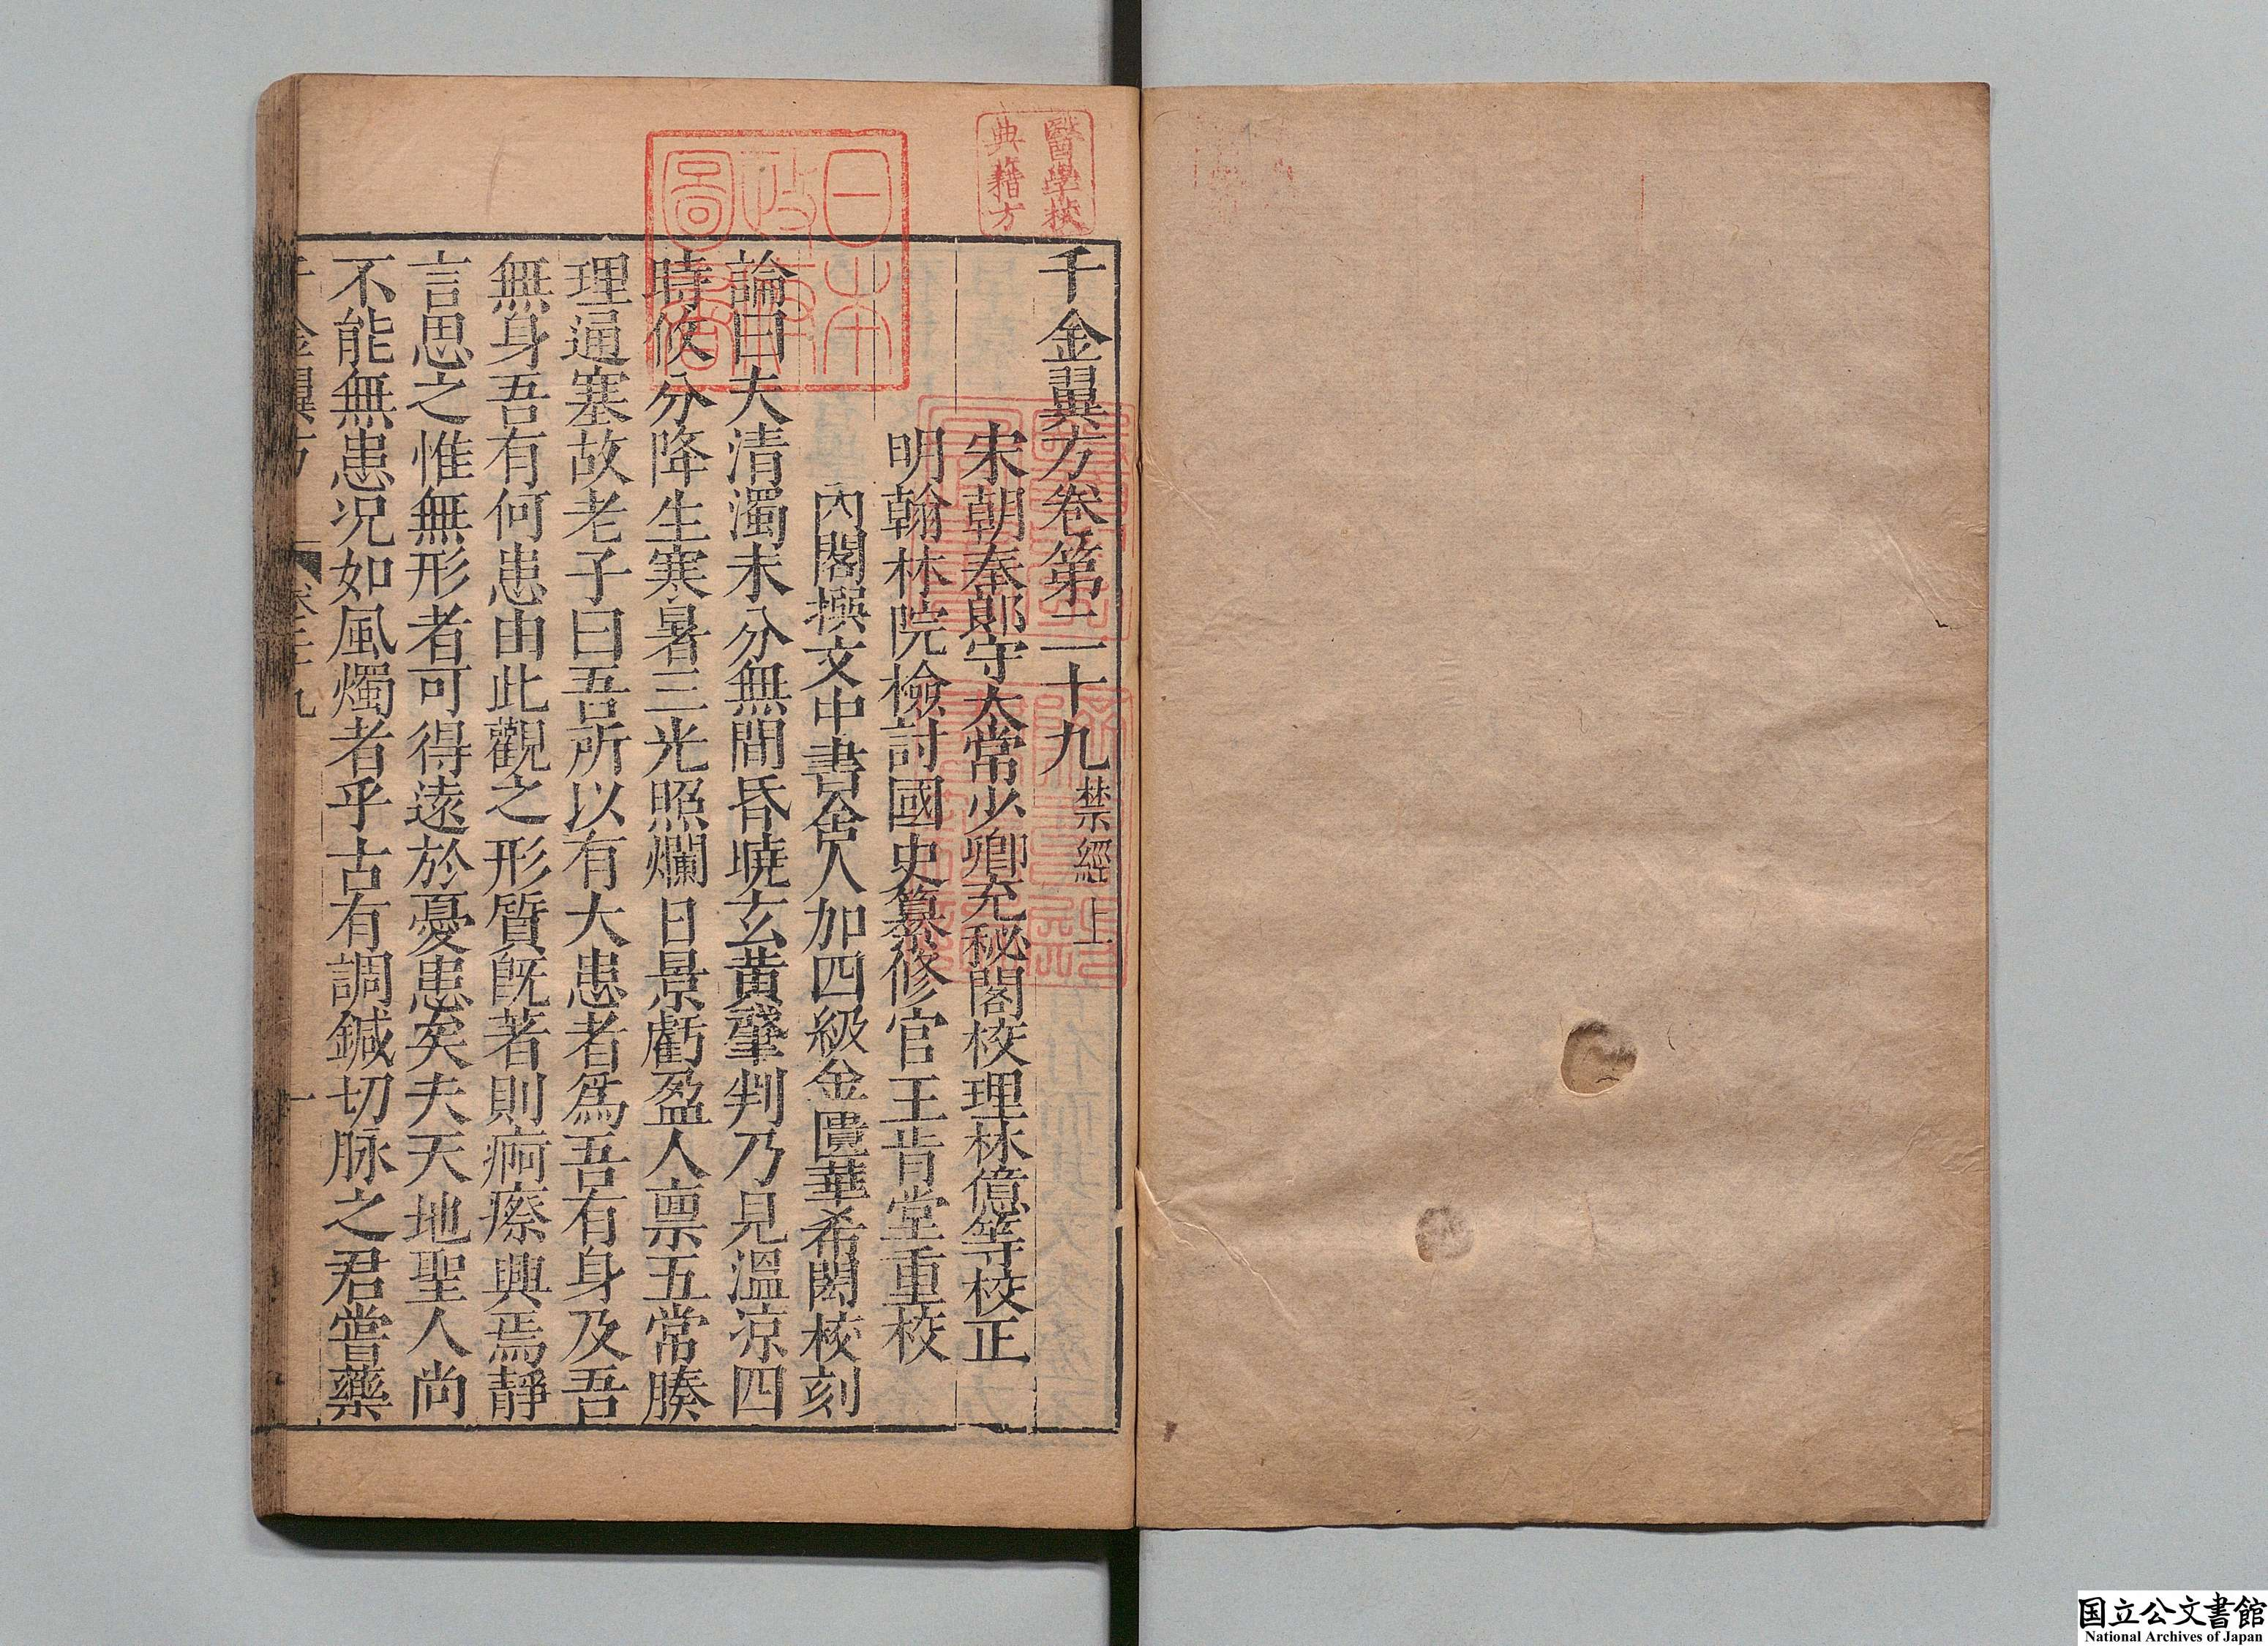 千金翼方卷第二十九 禁經上
宋朝奉郎守太常少卿充秘閣校理林億等校正
明翰林院檢討國史纂修官王肯堂重校
內閣撰文中書舍人加四級金匱華希閎校刻
論曰夫清濁未分無間昏曉玄黃肇判乃見溫涼四
時攸分降生寒暑三光照爛日景虧盈人禀五常腠
理通塞故老子曰吾所以有大患者為吾有身及吾
無身吾有何患由此觀之形質既著則痾瘵興焉靜
言思之惟無形者可得遠於憂患矣夫天地聖人尚
不能無患況如風燭者乎古有調鍼切脉之君嘗藥
千金翼方 卷二十九 一
醫學校
典籍方
日本
政府
圖書
国立公文書館
National Archives of Japan